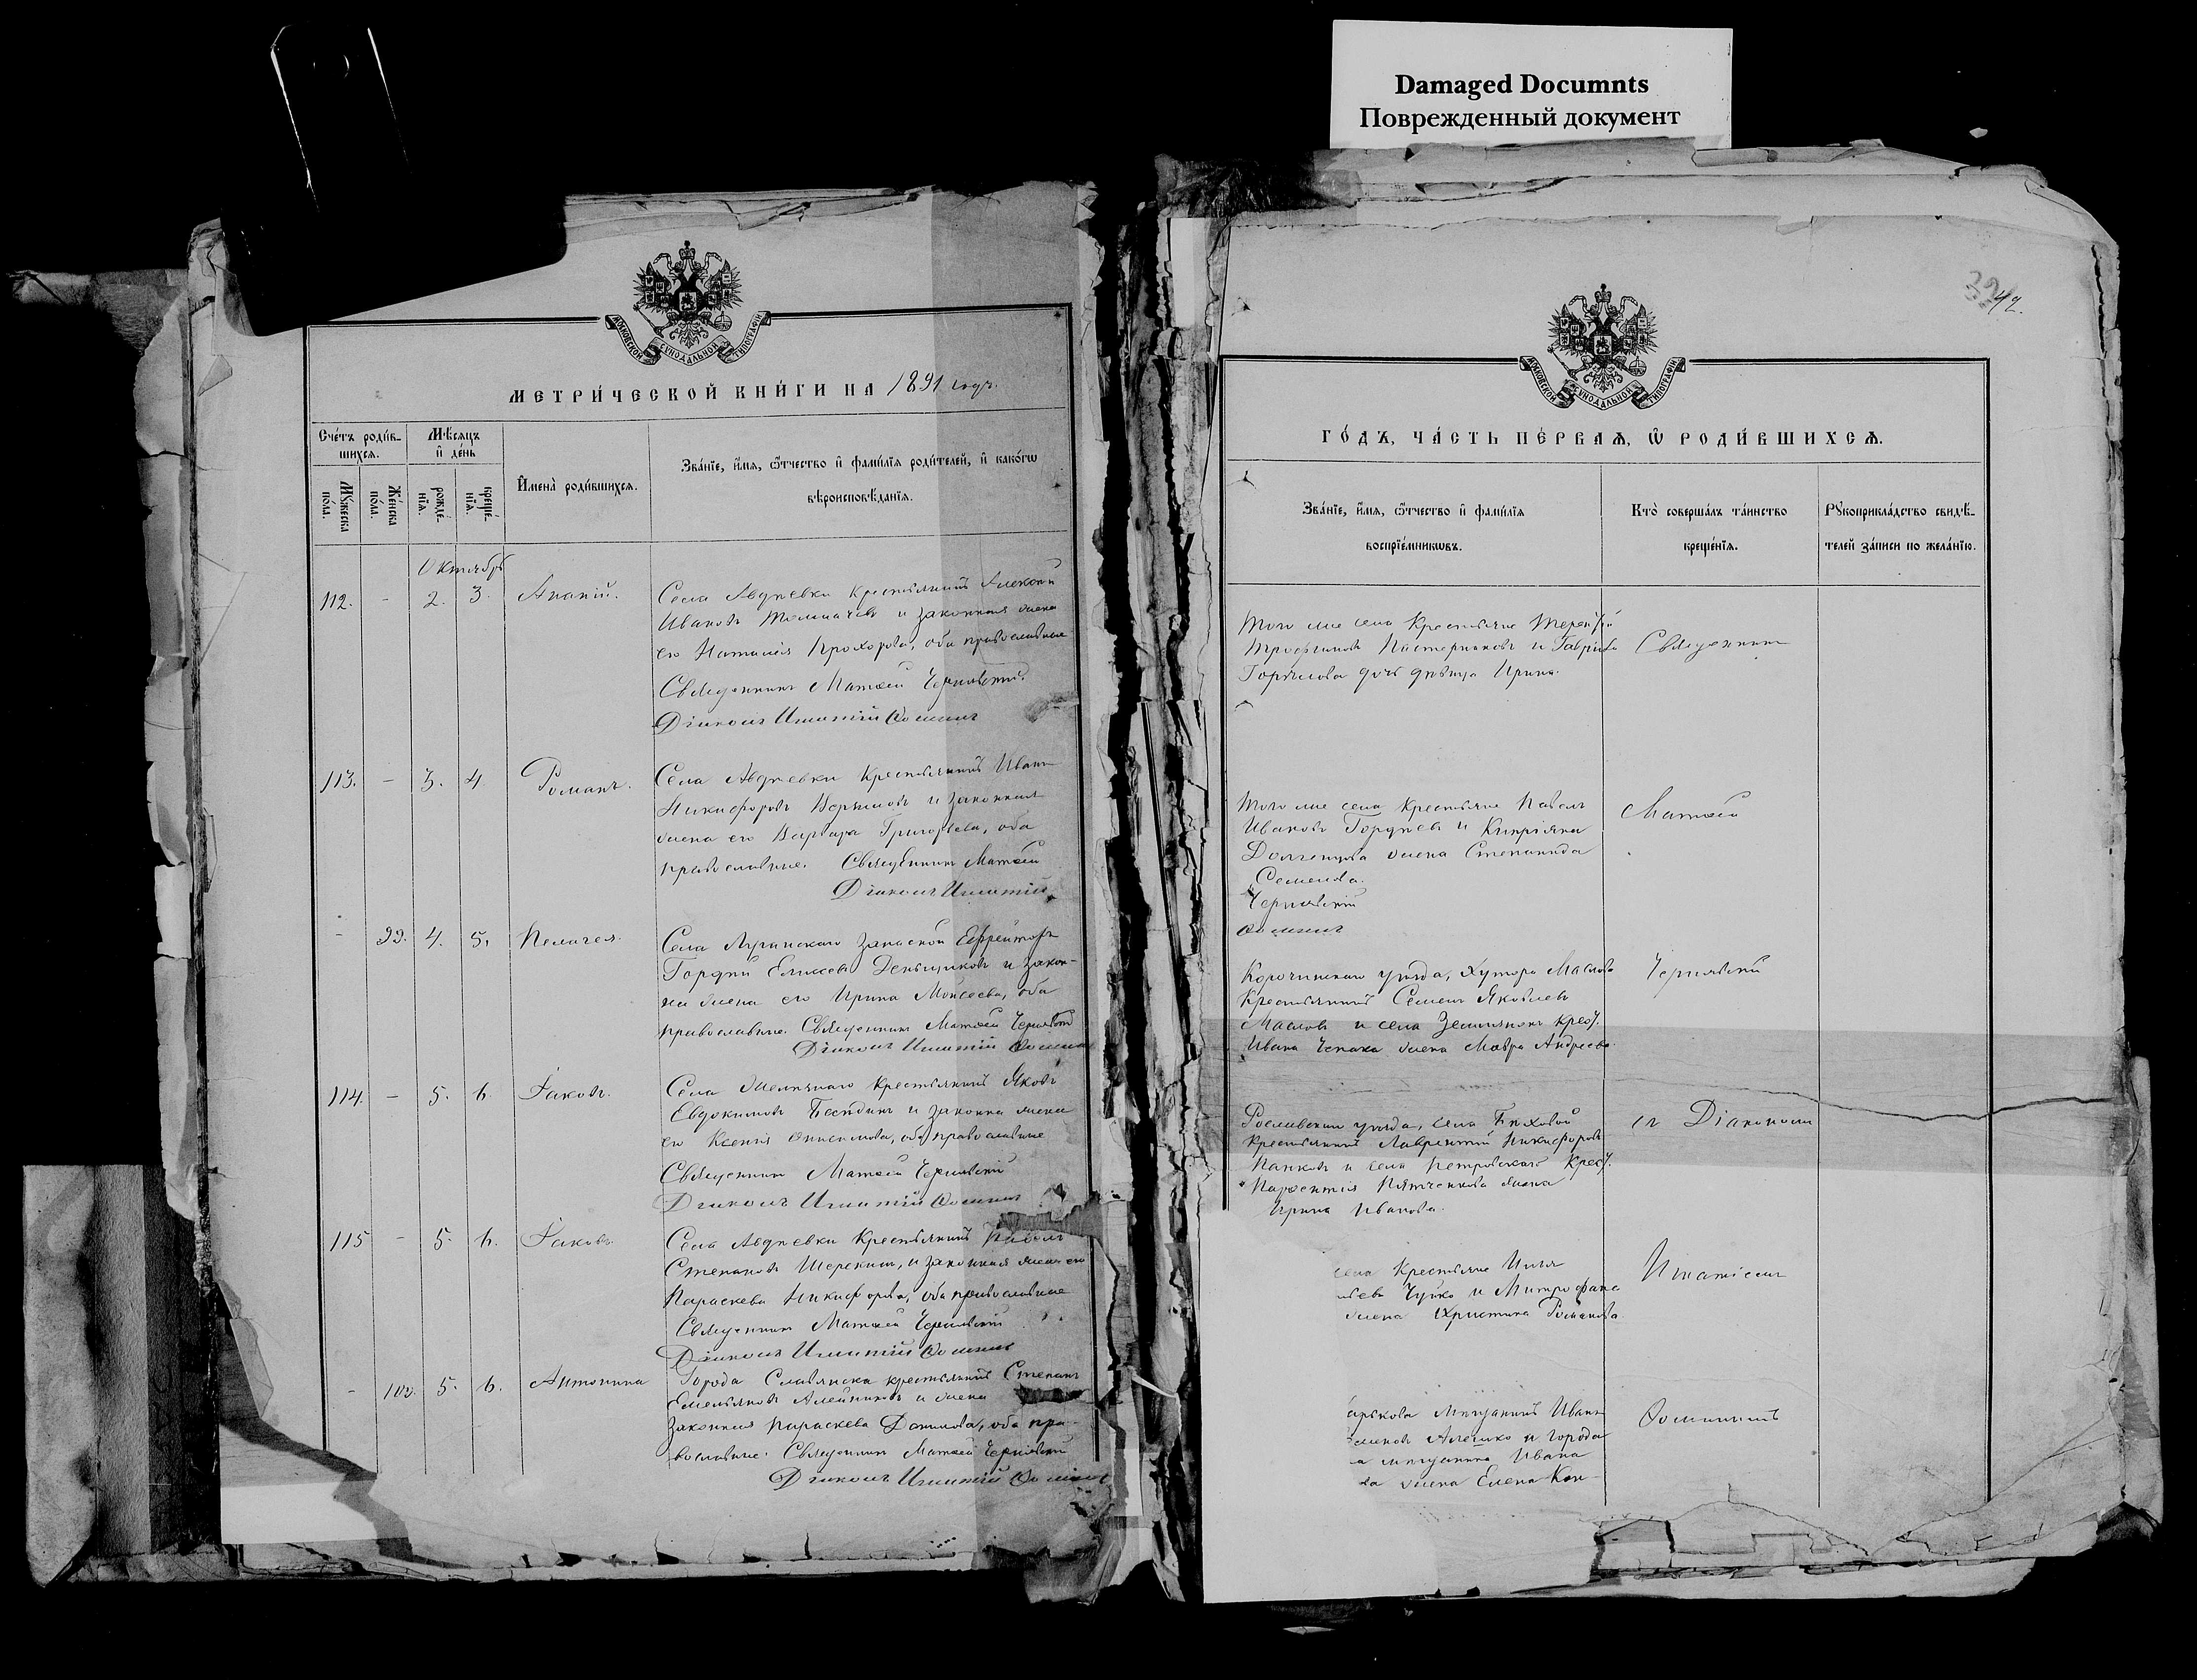 Damaged Documnts
Поврежденный документ
МОСКОВСКОЙ СѴНОДАЛЬНОЙ ТИПОГРАФІИ
МЕТРИ́ЧЕСКОЙ КНИ́ГИ НА 1891 годъ.
Сче́тъ роди́в-
шихсѧ.
Мѣ́сяцъ
и҆ де́нь
И҆мена̀ роди́вшихсѧ.
Зва́нїе, и҆́мѧ, ѻ҆́тчество и҆ фами́лїѧ роди́телей, и҆ како́гѡ
вѣроисповѣ́данїѧ.
Мꙋ́жеска по́ла.
Же́нска по́ла.
рожде́-
нїѧ.
креще́-
нїѧ.
Октябрь
112. - 2. 3. Ананій.
Села Авдѣевки крестьянинъ Алексѣй
Ивановъ Толмачевъ и законная жена
его Наталія Прохорова, оба православные
Священникъ Матѳей Чернявскій.
Діаконъ Игнатій Ѳоминъ
113. - 3. 4. Романъ.
Села Авдѣевки крестьянинъ Иванъ
Никифоровъ и законная
жена его Варвара Григорьева, оба
православные. Священникъ Матѳей
Діаконъ Игнатій
- 99. 4. 5. Пелагея.
Села Луганскаго запасной Ефрейторъ
Гордѣй Елисеевъ Деньщиковъ и закон-
ная жена его Ирина Моисеева, оба
православные. Священникъ Матѳей Чернявскій
Діаконъ Игнатій Ѳоминъ
114. - 5. 6. Іаковъ.
Села крестьянинъ Яковъ
Евдокимовъ Бесѣдинъ и законная жена
его Ксенія Анисимова, оба православные
Священникъ Матѳей Чернявскій
Діаконъ Игнатій Ѳоминъ
115 - 5. 6. Іаковъ.
Села Авдѣевки крестьянинъ Павелъ
Степановъ Шерекинъ, и законная жена его
Параскева Никифорова, оба православные
Священникъ Матѳей Чернявскій
Діаконъ Игнатій Ѳоминъ
- 100. 5. 6. Антонина
Города Славянска крестьянинъ Степанъ
Емельяновъ Алейниковъ и жена
законная Параскева Данилова, оба пра-
вославные. Священникъ Матѳей Чернявскій
Діаконъ Игнатій Ѳоминъ
42.
МОСКОВСКОЙ СѴНОДАЛЬНОЙ ТИПОГРАФІИ
ГО́ДЪ, ЧА́СТЬ ПЕ́РВАѦ, Ѡ҆ РОДИ́ВШИХСѦ.
Зва́нїе, и҆́мѧ, ѻ҆́тчество и҆ фами́лїѧ
воспрїе́мникѡвъ.
Кто̀ соверша́лъ та́инство
креще́нїѧ.
Рꙋкоприкла́дство свидѣ́-
телей за́писи по жела́нїю.
Того же села крестьяне Терентій
Трофимовъ Пастернаковъ и Гавріила
дочь дѣвица Ирина.
Священникъ
Того же села крестьяне Павелъ
Ивановъ Гордѣевъ и Кипріяна
Долженкова жена Степанида
Семенова.
Чернявскій
Ѳоминъ
Матѳей
Корочанскаго уѣзда, хутора Маслова
крестьянинъ Семенъ Яковлевъ
Масловъ и села Землянокъ крест.
Ивана Чепака жена Мавра Андреева.
Чернявскій
уѣзда, села
крестьянинъ Лаврентій Никифоровъ
Панковъ и села Петровскаго крест.
Парѳентія Пятченкова жена
Ирина Иванова.
съ Діакономъ
села крестьяне Илья
Чуйко и Митрофана
жена Христина Романова.
Игнатіемъ
мѣщанинъ Иванъ
Алешко и города
мѣщанина Ивана
жена Елена Кон-
Ѳоминымъ